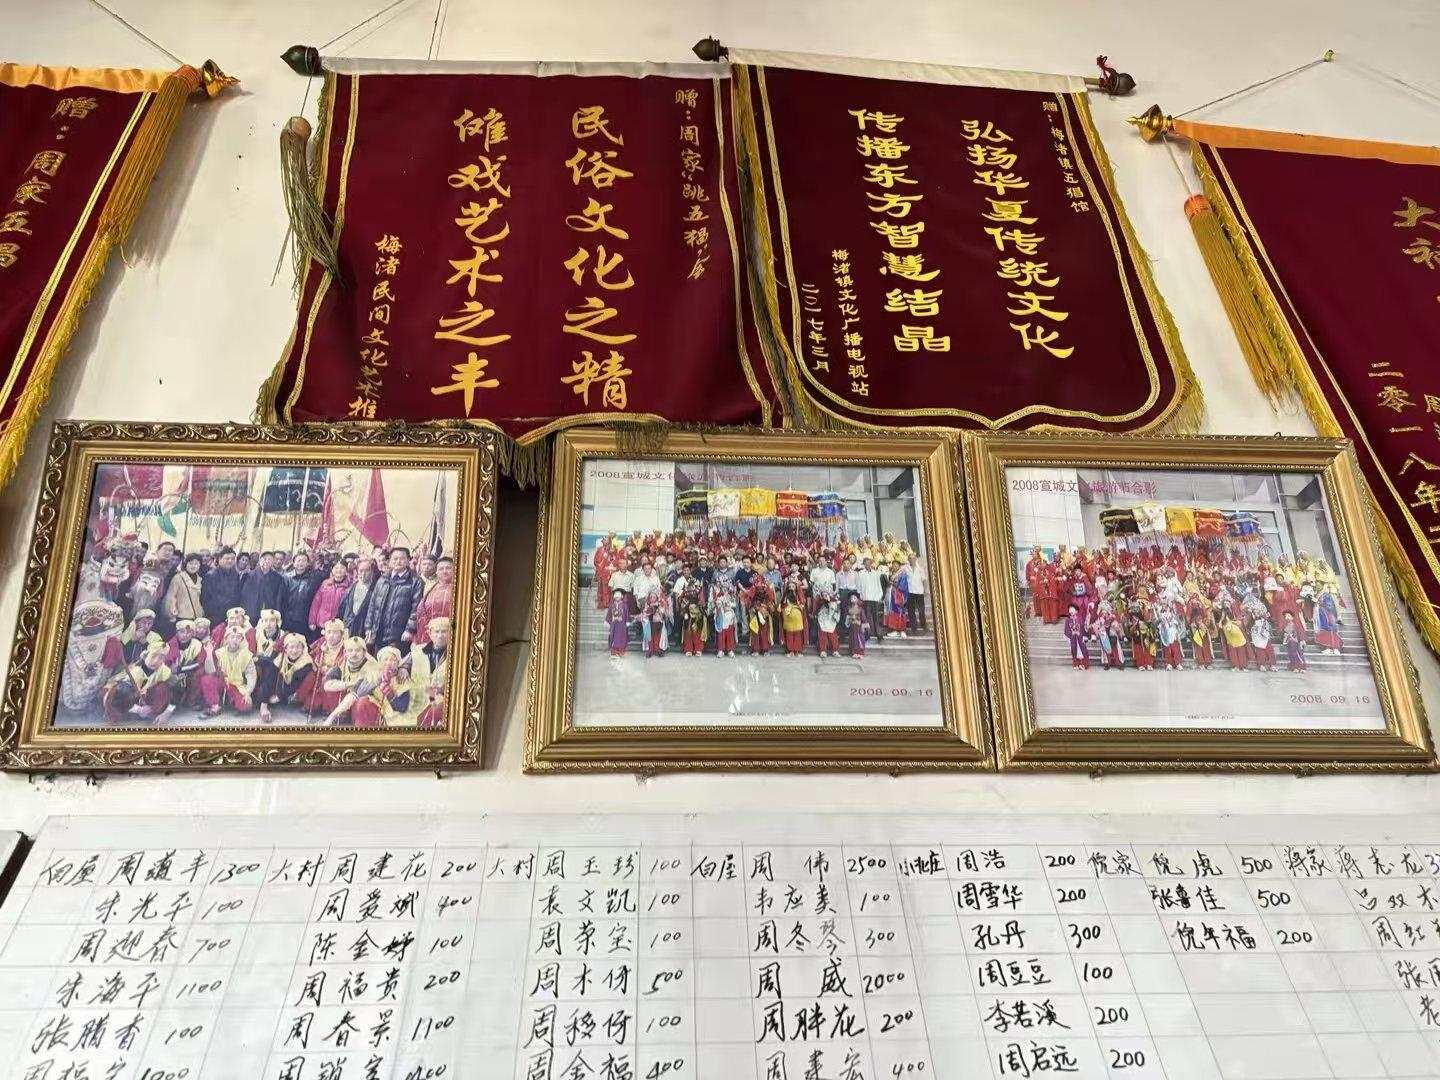 赠：周家五猖
赠：周家跳五猖会
民俗文化之精
傩戏艺术之丰
梅渚民间文化艺术推
赠：梅渚镇五猖馆
弘扬华夏传统文化
传播东方智慧结晶
梅渚镇文化广播电视站
二〇一七年三月
大神
二零一八年
2008宣城文
2008.09.16
2008宣城文 旅游节合影
2008.09.16
白屋 周道平 1300 大村 周建花 200 大村 周玉珍 100 白屋 周伟 2500 周浩 200 倪家 倪虎 500 蒋家 蒋志龙
朱光平 100 周爱斌 400 袁文凯 100 韦应美 100 周雪华 200 张鲁佳 500 吕双木
周迎春 700 陈金婷 100 周荣宝 100 周冬琴 300 孔丹 300 倪午福 200 周红
朱海平 1100 周福贵 200 周木伢 500 周威 2000 周豆豆 100
张腊香 100 周春景 1100 周移伢 100 周胖花 200 李若溪 200
周福 周锁 周金福 400 周建宏 400 周启远 200